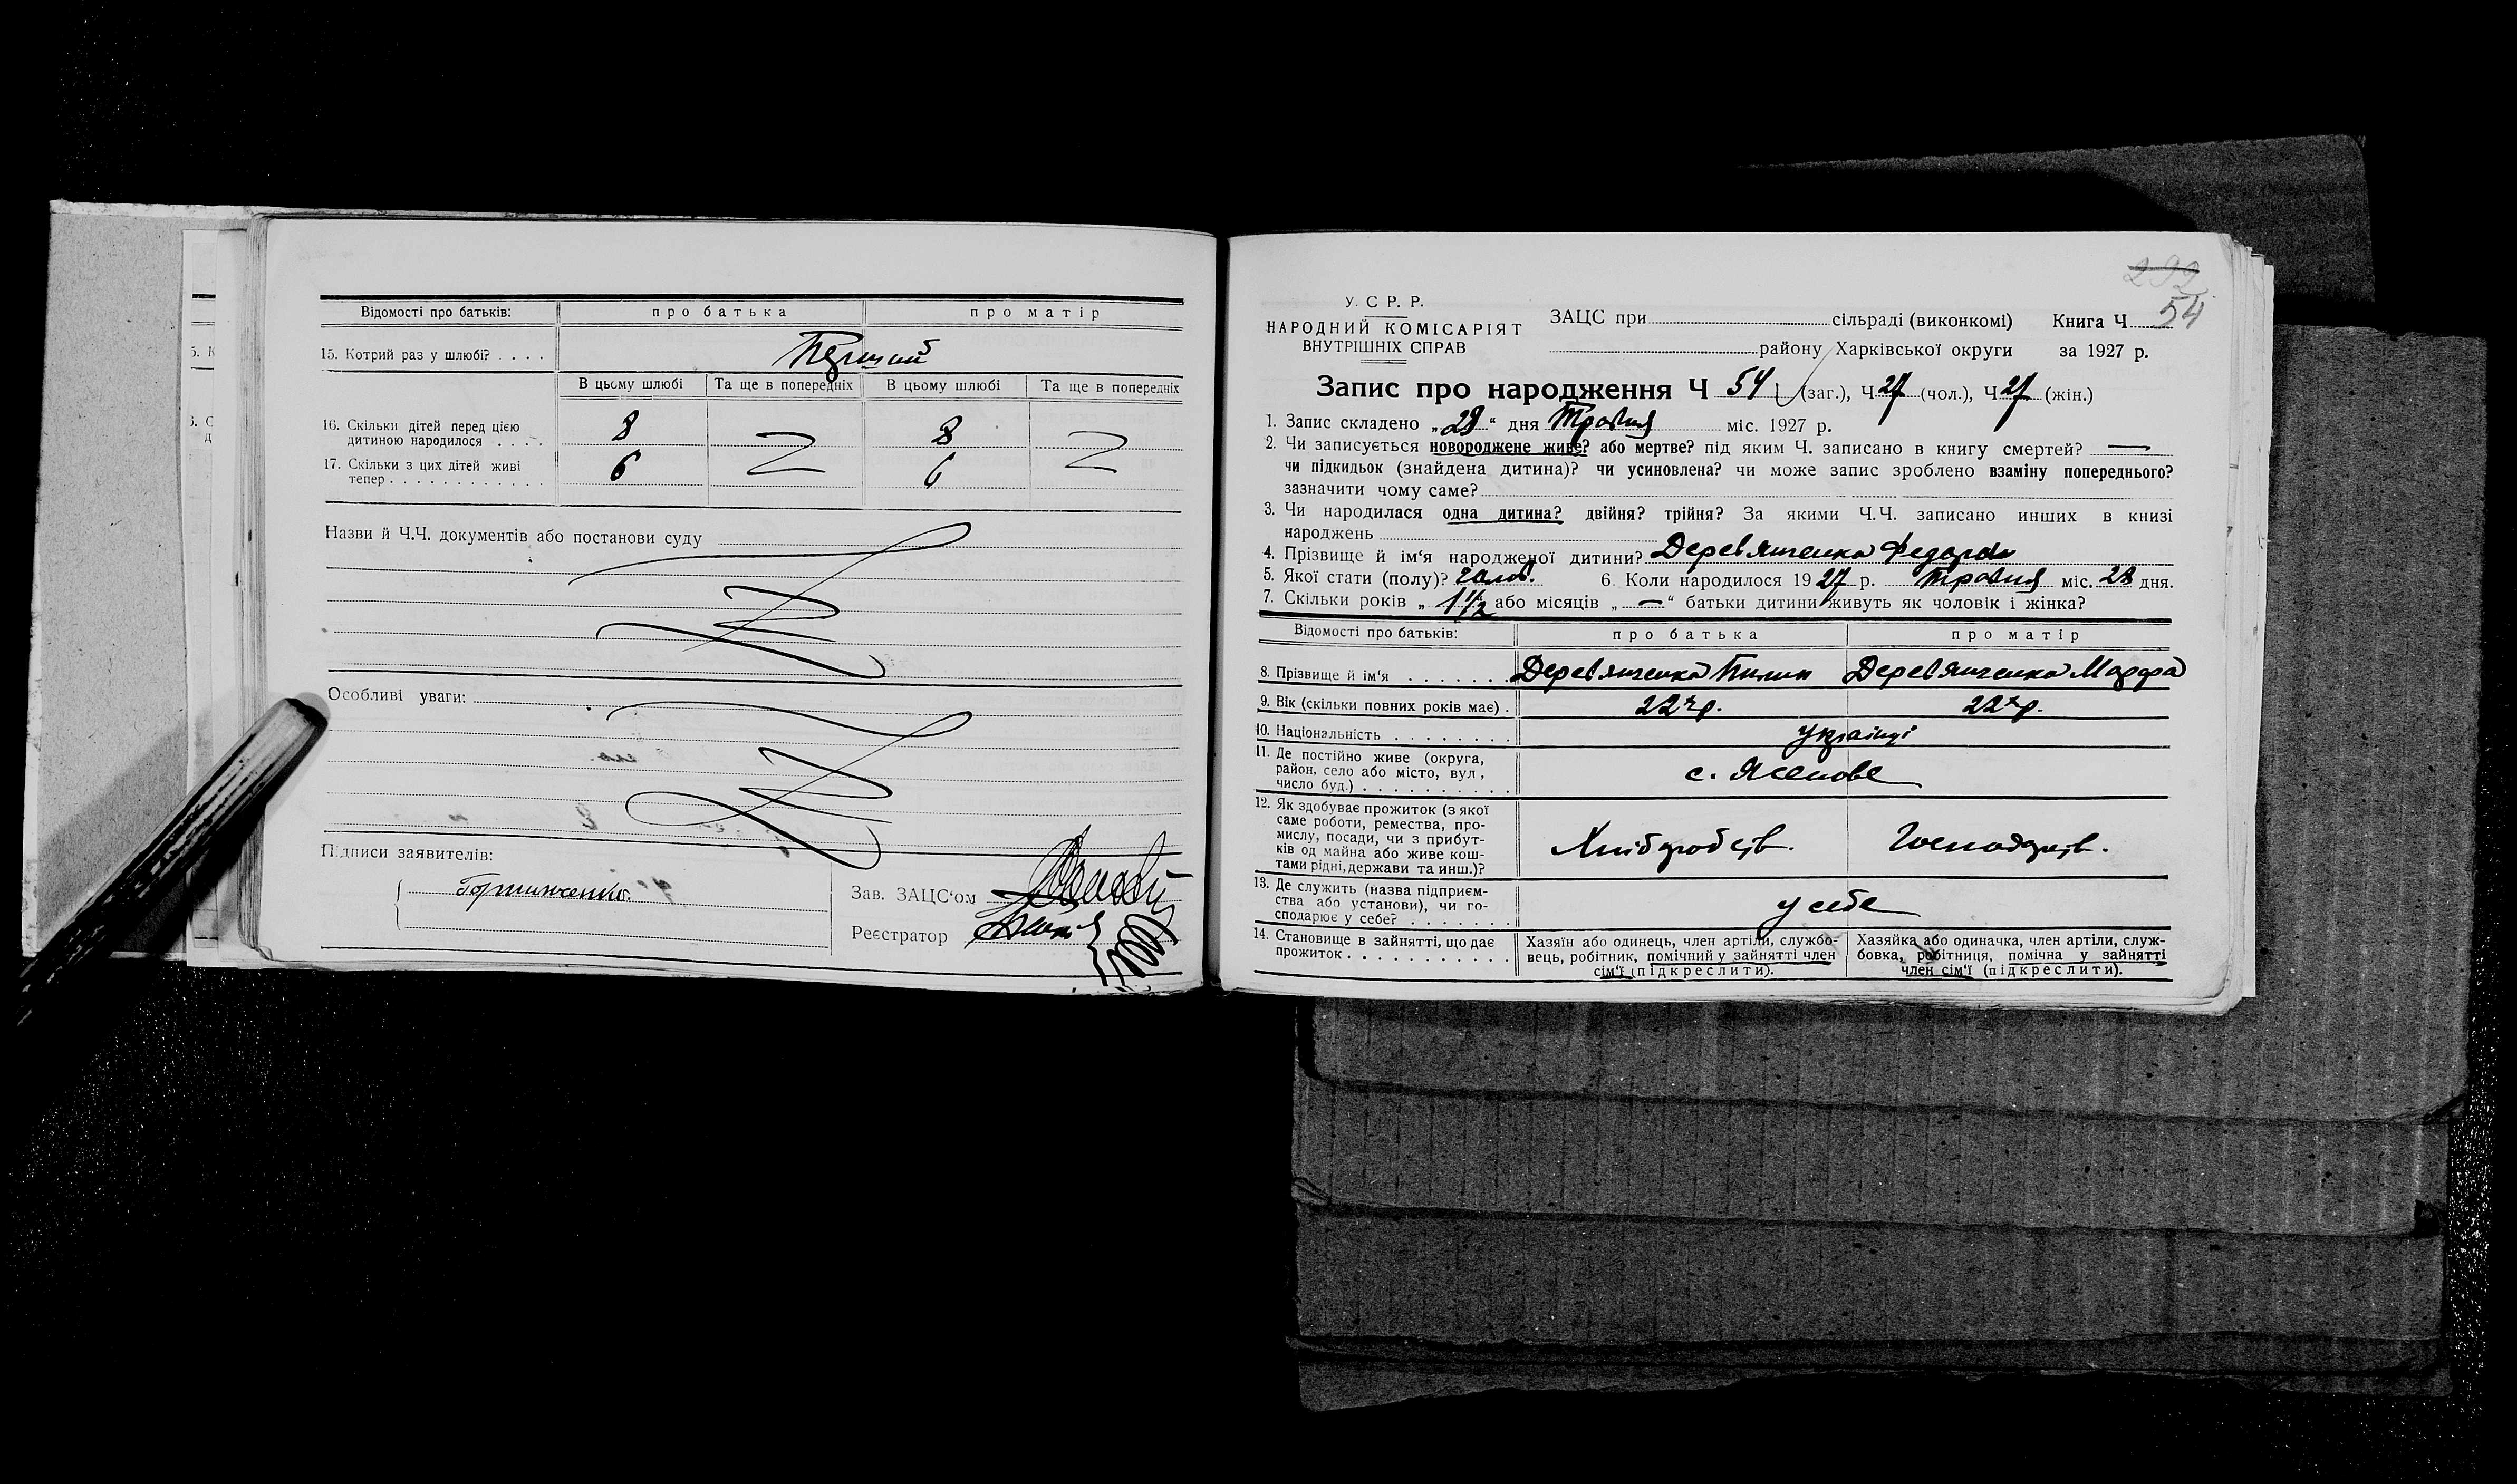 Відомості про батьків: про батька про матір
15. Котрий раз у шлюбі? . . . . Перший
В цьому шлюбі Та ще в попередніх В цьому шлюбі Та ще в попередніх
16. Скільки дітей перед цією
дитиною народилося . . . . 8 8
17. Скільки з цих дітей живі
тепер . . . . . . . . . . . . 6 6
Назви й Ч.Ч. документів або постанови суду
Особливі уваги:
Підписи заявителів:
Зав. ЗАЦС'ом
Реєстратор
299
54
У. С Р. Р.
НАРОДНИЙ КОМІСАРІЯТ
ВНУТРІШНІХ СПРАВ
ЗАЦС при сільраді (виконкомі) Книга Ч
району Харківської округи за 1927 р.
Запис про народження Ч 54 (заг.), Ч 27 (чол.), Ч 27 (жін.)
1. Запис складено „29“ дня Травня міс. 1927 р.
2. Чи записується новороджене живе? або мертве? під яким Ч. записано в книгу смертей? —
чи підкидьок (знайдена дитина)? чи усиновлена? чи може запис зроблено взаміну попереднього?
зазначити чому саме?
3. Чи народилася одна дитина? двійня? трійня? За якими Ч.Ч. записано инших в книзі
народжень
4. Прізвище й ім'я народженої дитини? Деревянченко Федора
5. Якої стати (полу)? чолов. 6. Коли народилося 1927 р. Травня міс. 28 дня.
7. Скільки років „1 1/2“ або місяців „—“ батьки дитини живуть як чоловік і жінка?
Відомості про батьків: про батька про матір
8. Прізвище й ім'я . . . . . . . Деревянченко Пилип Деревянченко Марфа
9. Вік (скільки повних років має) . 22 р. 22 р.
10. Національність . . . . . . . . українці
11. Де постійно живе (округа,
район, село або місто, вул,
число буд.) . . . . . . . . . . с. Ясенове
12. Як здобуває прожиток (з якої
саме роботи, ремества, про-
мислу, посади, чи з прибут-
ків од майна або живе кош-
тами рідні, держави та инш.)? Хліборобств. Господарств.
13. Де служить (назва підприєм-
ства або установи), чи го-
сподарює у себе? . . . . . . . у себе
14. Становище в зайнятті, що дає
прожиток . . . . . . . . . . .
Хазяїн або одинець, член артіли, службо-
вець, робітник, помічний у зайнятті член
сім'ї (підкреслити).
Хазяйка або одиначка, член артіли, служ-
бовка, робітниця, помічна у зайнятті
член сім'ї (підкреслити).